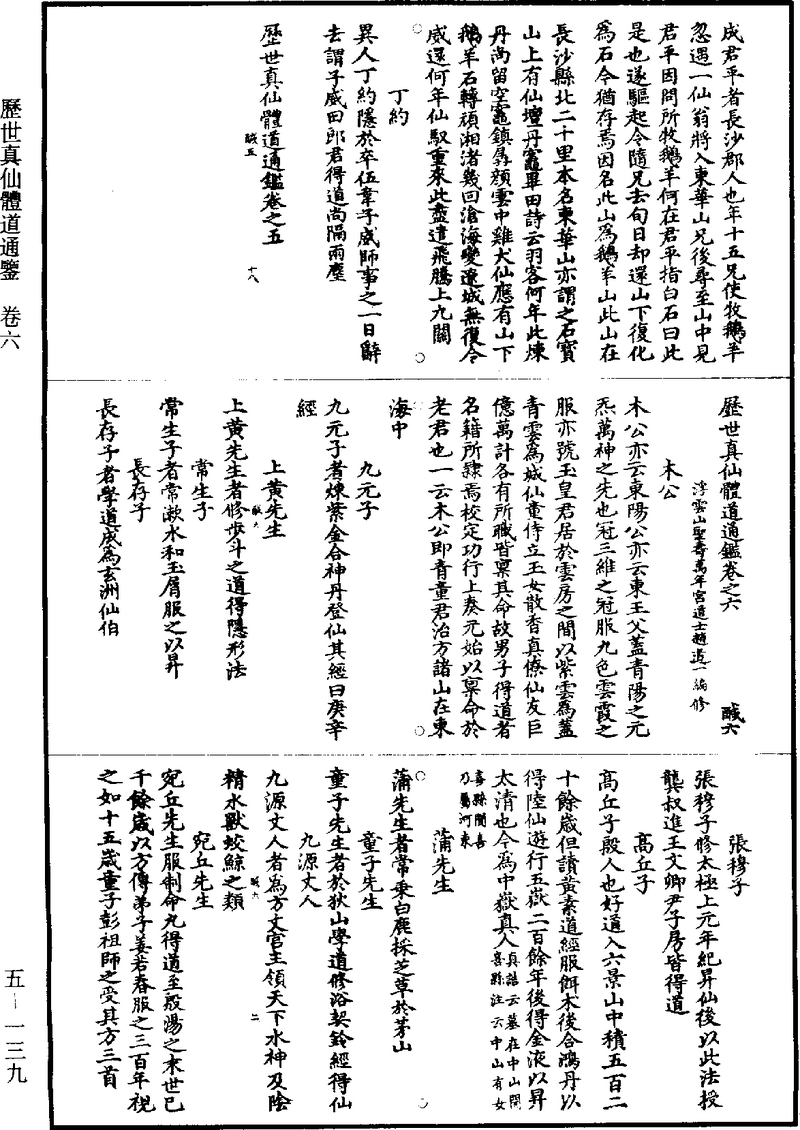 歷世真仙體道通鑒　卷六
五—一三九
成君平者長沙郡人也年十五兄使牧鵝羊
忽遇一仙翁將入東華山兄後尋至山中見
君平因問所牧鵝羊何在君平指白石曰此
是也遂驅起令隨兄去旬日却還山下復化
為石今猶存焉因名此山為鵝羊山此山在
長沙縣北二十里本名東華山亦謂之石寶
山上有仙壇丹竈畢田詩云羽客何年此煉
丹尚留空竈鎮孱顏雲中雞犬仙應有山下
鵝羊石轉頑湘渚幾回滄海變遼城無復令
威還何年仙馭重來此盡遣飛騰上九關
丁約
異人丁約隱於卒伍韋子威師事之一日辭
去謂子威田郎君得道尚隔兩塵
歷世真仙體道通鑑卷之五
醎五　十八
歷世真仙體道通鑑卷之六　醎六
浮雲山聖壽萬年宮道士趙道一編修
木公
木公亦云東陽公亦云東王父蓋青陽之元
炁萬神之先也冠三維之冠服九色雲霞之
服亦號玉皇君居於雲房之間以紫雲為蓋
青雲為城仙童侍立玉女散香真僚仙友巨
億萬計各有所職皆稟其命故男子得道者
名籍所隸焉校定功行上奏元始以稟命於
老君也一云木公即青童君治方諸山在東
海中
九元子
九元子者煉紫金合神丹登仙其經曰庚辛
經
上黃先生
醎六
上黃先生者修步斗之道得隱形法
常生子
常生子者常漱水和玉屑服之以昇
長存子
長存子者學道成為玄洲仙伯
張穆子
張穆子修太極上元年紀昇仙後以此法授
龔叔進王文卿尹子房皆得道
高丘子
高丘子殷人也好道入六景山中積五百二
十餘歲但讀黃素道經服餌术後合鴻丹以
得陸仙遊行五嶽二百餘年後得金液以昇
太清也今為中嶽真人真誥云墓在中山聞
喜縣注云中山有女
喜縣聞喜
乃屬河東
蒲先生
蒲先生者常乘白鹿採芝草於茅山
童子先生
童子先生者於狄山學道修浴契鈐經得仙
九源丈人
九源丈人者為方丈宮主領天下水神及陰
醎六　二
精水獸蛟鯨之類
宛丘先生
宛丘先生服制命丸得道至殷湯之末世已
千餘歲以方傳弟子姜若春服之三百年視
之如十五歲童子彭祖師之受其方三首